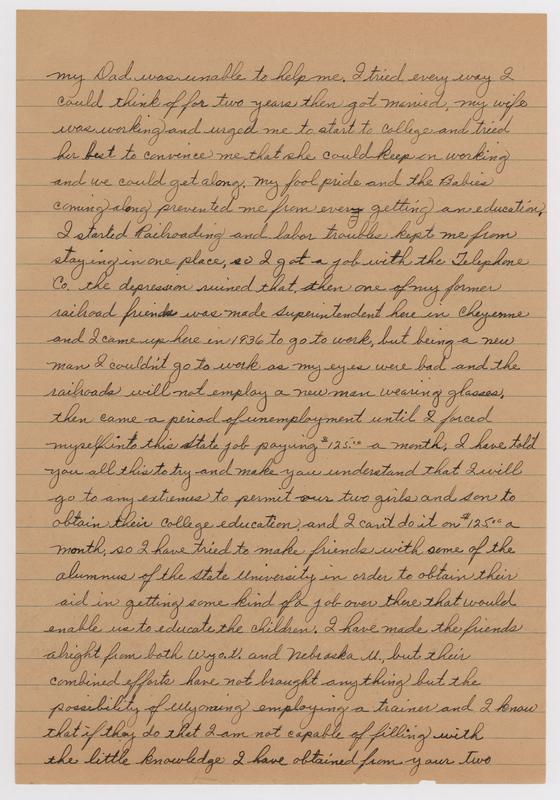 my Dad was unable to help me. I tried every way I
could think of for two years then got married, my wife
was working and urged me to start to college and tried
her best to convince me that she could keep on working
and we could get along. My fool pride and the Babies
coming along prevented me from every getting an education,
I started Railroading and labor troubles kept me from
staying in one place, so I got a job with the Telephone
Co. the depression ruined that, then one of my former
railroad friends was made Superintendent here in Cheyenne
and I came up here in 1936 to go to work, but being a new
man I couldn't go to work as my eyes were bad and the
railroads will not employ a new man wearing glasses,
then came a period of unemployment until I forced
myself into this state job paying $125.00 a month, I have told
you all this to try and make you understand that I will
go to any extremes to permit our two girls and son to
obtain their college education, and I can't do it on $125.00 a
month, so I have tried to make friends with some of the
alumnus of the State University in order to obtain their
aid in getting some kind of a job over there that would
enable us to educate the children. I have made the friends
alright from both Wyo. U. and Nebraska U., but their
combined efforts have not brought anything but the
possibility of Wyoming employing a trainer and I know
that if they do that I am not capable of filling with
the little knowledge I have obtained from your two